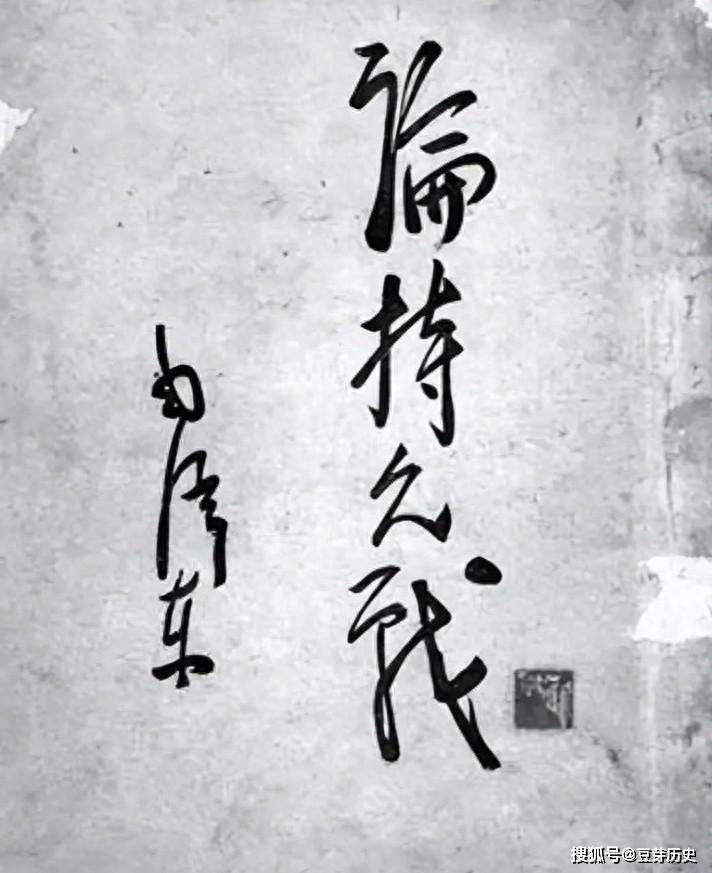 論持久戰
毛澤東
搜狐号@豆芽历史